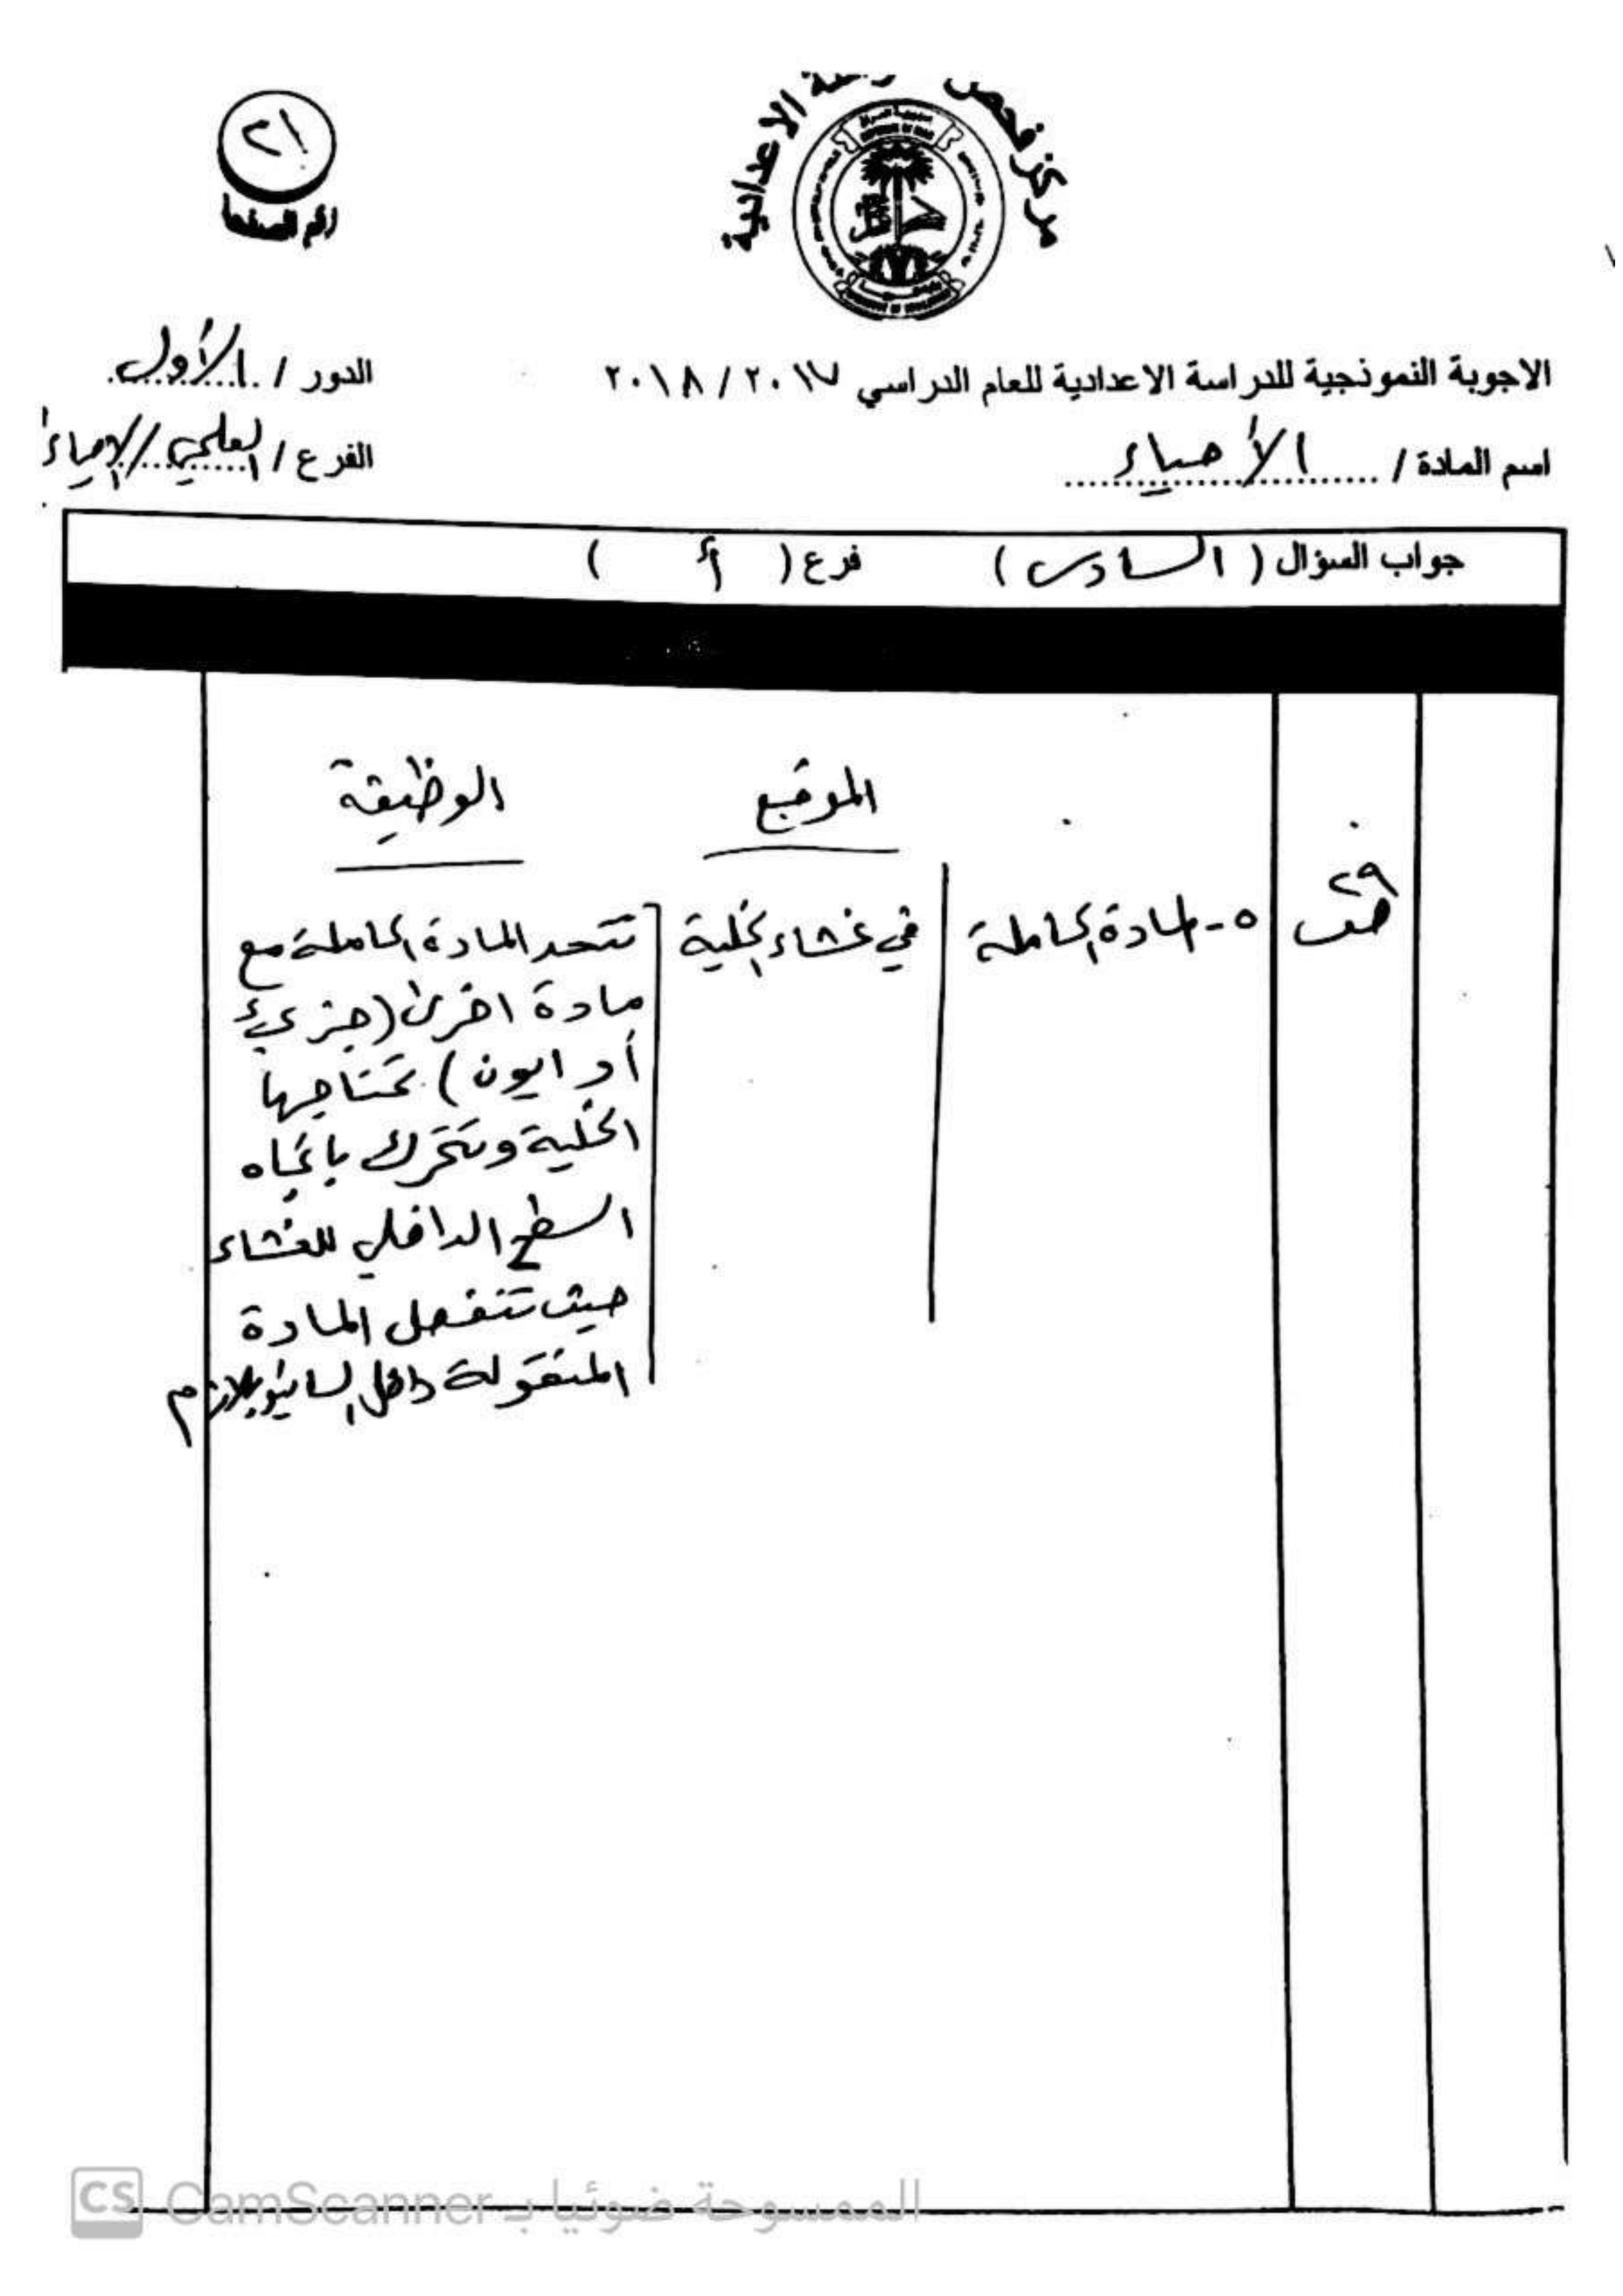 مركز فحص الاعدادية
٢١
رقم الصفحة
الاجوبة النموذجية للدراسة الاعدادية للعام الدراسي ٢٠١٧ / ٢٠١٨
الدور / الأول
اسم المادة / الأحياء
الفرع / العلمي / الاحياء
جواب السؤال ( السادس ) فرع ( أ )
الموقع
الوظيفة
ص ٢٩
٥- المادة الحاملة
في غشاء الخلية
تتحد المادة الحاملة مع
مادة اخرى (جزيء
أو ايون) تحتاجها
الخلية وتتحرك باتجاه
السطح الداخلي للغشاء
حيث تنفصل المادة
المنقولة داخل السايتوبلازم
CS CamScanner الممسوحة ضوئيا بـ